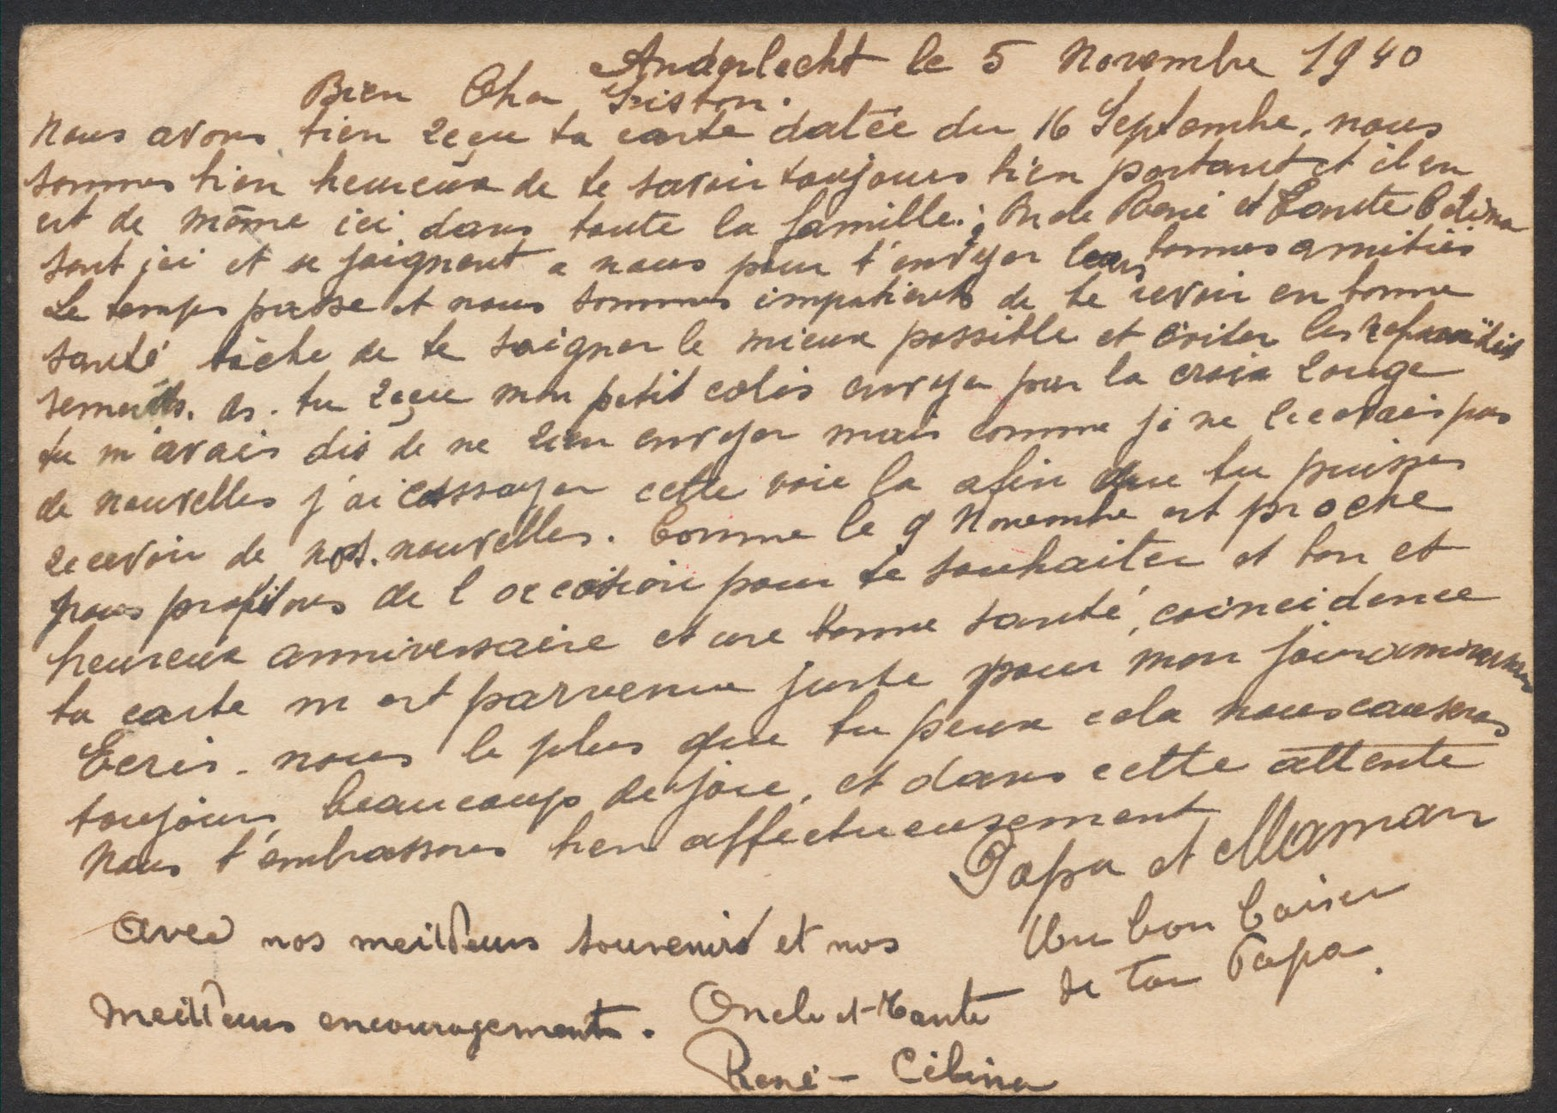 Anderlecht le 5 Novembre 1940
Bien Cher Griston.
Nous avons bien reçu ta carte datée du 16 Septembre, nous
sommes bien heureux de te savoir toujours bien portant et il en
est de même ici dans toute la famille. ; Oncle René et Tante Célina
sont ici et se joignent a nous pour t'envoyer leurs bonnes amitiés
Le temps passe et nous sommes impatients de te revoir en bonne
santé tâche de te soigner le mieux possible et éviter les refroidis
sements. as-tu reçu mon petit colis envoyer par la croix rouge
tu m'avais dis de ne rien envoyer mais comme je ne recevais pas
de nouvelles j'ai essayer cette voie la afin que tu puisses
recevoir de nos. nouvelles. Comme le 9 Novembre est proche
nous profitons de l occasion pour te souhaiter et bon et
heureux anniversaire et une bonne santé, coincidence
ta carte m est parvenue juste pour mon jour anniversaire
Ecris-nous le plus que tu peux cela nous causeras
toujours beaucoup de joie, et dans cette attente
Nous t'embrassons bien affectueusement
Papa et Maman
Avec nos meilleurs souvenirs et nos
Un bon baiser
de ton Papa.
meilleurs encouragements. Oncle et Tante
René - Célina